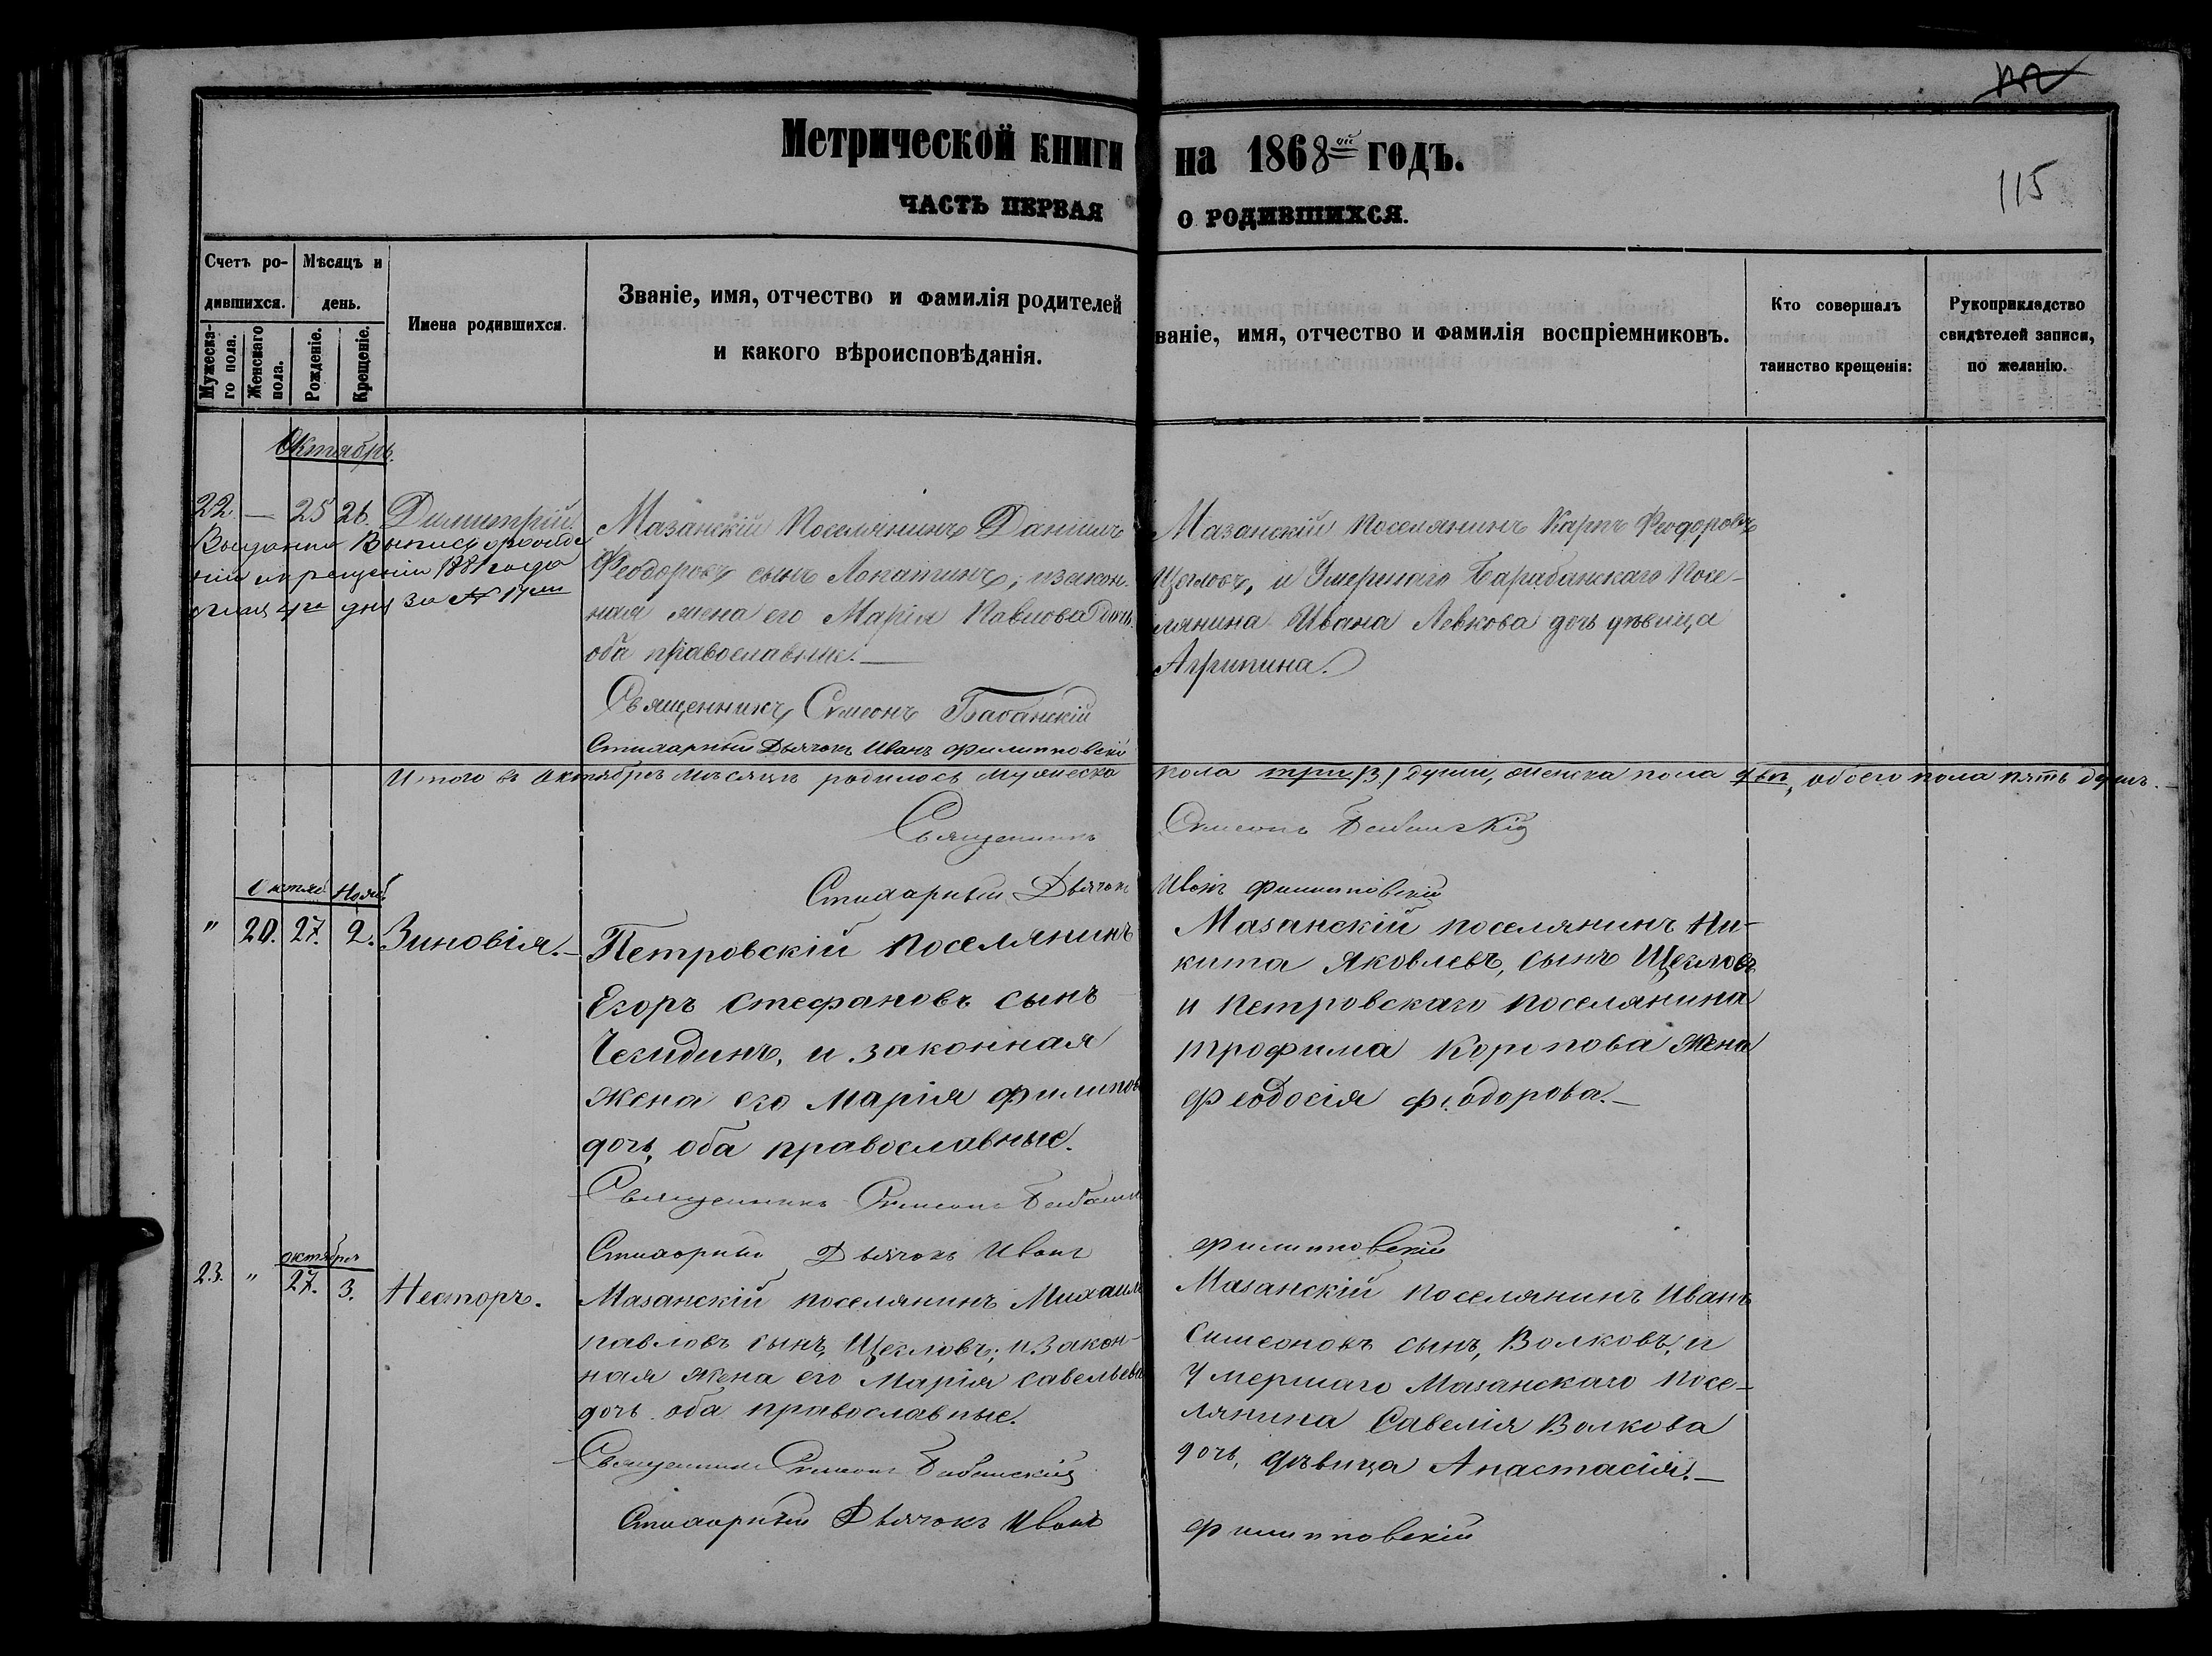 115
Метрической книги на 1868ой годъ.
ЧАСТЬ ПЕРВАЯ О РОДИВШИХСЯ.
Счетъ ро-
дившихся.
Мѣсяцъ и
день.
Мужеска-
го пола.
Женскаго
пола.
Рожденіе.
Крещеніе.
Имена родившихся.
Званіе, имя, отчество и фамилія родителей
и какого вѣроисповѣданія.
ваніе, имя, отчество и фамилія воспріемниковъ.
Кто совершалъ
таинство крещенія:
Рукоприкладство
свидѣтелей записи,
по желанію.
Октябрь.
22. — 25 26. Димитрій.
дня за № 17
Мазанскій Поселянинъ Даніилъ
Феодоровъ сынъ Лопатинъ, и закон-
ная жена его Марія Павлова дочь
оба православные. —
Священникъ Симеонъ Бабанскій
Стихарный Дьячокъ Иванъ Филипповскій
Мазанскій Поселянинъ Карпъ Феодоровъ
Щегловъ, и Умершаго Барабанскаго Посе-
лянина Ивана Левкова дочь дѣвица
Агрипина.
Итого въ Октябрѣ мѣсяцѣ родилось мужеска пола три /3/ души, женска пола двѣ, обоего пола пять душъ. —
Священникъ Симеонъ Бабанскій
Стихарный Дьячокъ Иванъ Филипповскій
Октяб Нояб
" 20. 27. 2. Зиновія. —
Петровскій поселянинъ
Егоръ Стефановъ сынъ
Чекидинъ, и законная
жена его Марія Филипов
дочь, оба православные.
Священникъ Симеонъ Бабанск
Стихарный Дьячокъ Иванъ Филипповскій
Мазанскій поселянинъ Ни-
кита Яковлевъ, сынъ Щегловъ
и Петровскаго поселянина
Трофима Коропова жена
Феодосія Феодорова. —
октября
23. " 27. 3. Несторъ.
Мазанскій поселянинъ Михаилъ
Павловъ сынъ, Щегловъ; и закон-
ная жена его Марія Савельева
дочь оба православные.
Священникъ Симеонъ Бабанскій
Стихарный Дьячокъ Иванъ Филипповскій
Мазанскій поселянинъ Иванъ
Симеоновъ сынъ, Волковъ, и
Умершаго Мазанскаго посе-
лянина Савелія Волкова
дочь, дѣвица Анастасія. —